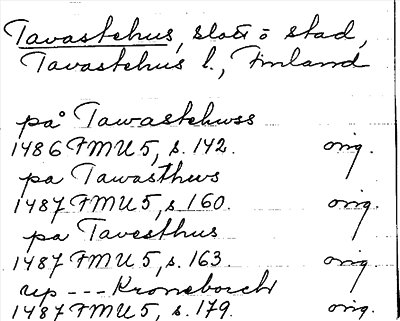 Tavastehus, slott o stad,
Tavastehus l., Finland
på Tawastehwss
1486 FMU 5, s. 142. orig.
pa Tawasthws
1487 FMU 5, s 160. orig.
pa Tavesthus
1487 FMU 5, s. 163. orig.
up --- Kroneborch
1487 FMU 5, s. 179. orig.